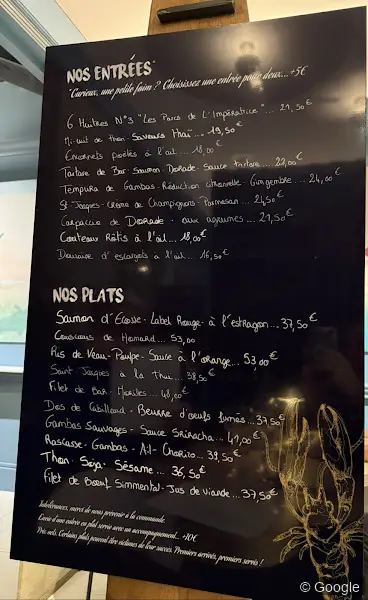 NOS ENTRÉES
"Curieux, une petite faim ? Choisissez une entrée pour deux...+5€
6 Huitres N°3 "Les Parcs de L'Impératrice"... 21,50€
Mi-cuit de thon - Saveurs Thaï... 19,50€
Encornets poêlés à l'ail... 18,00€
Tartare de Bar - Saumon - Dorade - Sauce tartare... 22,00€
Tempura de Gambas - Réduction citronnelle - Gingembre... 24,00€
St Jacques - Crème de Champignons - Parmesan... 24,50€
Carpaccio de Dorade - aux agrumes... 21,50€
Couteaux Rôtis à l'ail... 18,00€
Douzaine d'escargots à l'ail... 16,50€
NOS PLATS
Saumon d'Ecosse - Label Rouge - à l'estragon... 37,50€
Couscous de Homard... 53,00
Ris de Veau - Poulpe - Sauce à l'orange... 53,00€
Saint Jacques à la Thaï... 38,50€
Filet de Bar - Morilles... 48,00€
Dos de Cabillaud - Beurre d'oeufs fumés... 37,50€
Gambas Sauvages - Sauce Sriracha... 41,00€
Rascasse - Gambas - Ail - Chorizo... 39,50€
Thon - Soja - Sésame... 36,50€
Filet de Boeuf Simmental - Jus de viande... 37,50€
Intolérances, merci de nous prévenir à la commande.
Envie d'une entrée en plat servie avec un accompagnement... +10€
Prix nets. Certains plats peuvent être victimes de leur succès. Premiers arrivés, premiers servis !
© Google